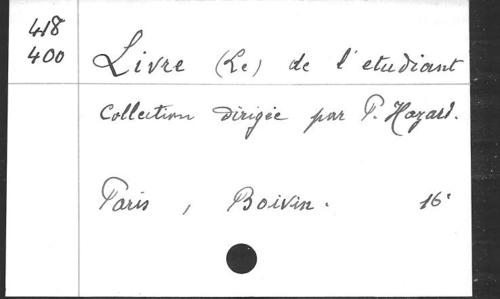 418
400
Livre (Le) de l'etudiant
Collection dirigée par P. Hazard.
Paris, Boivin. 16°